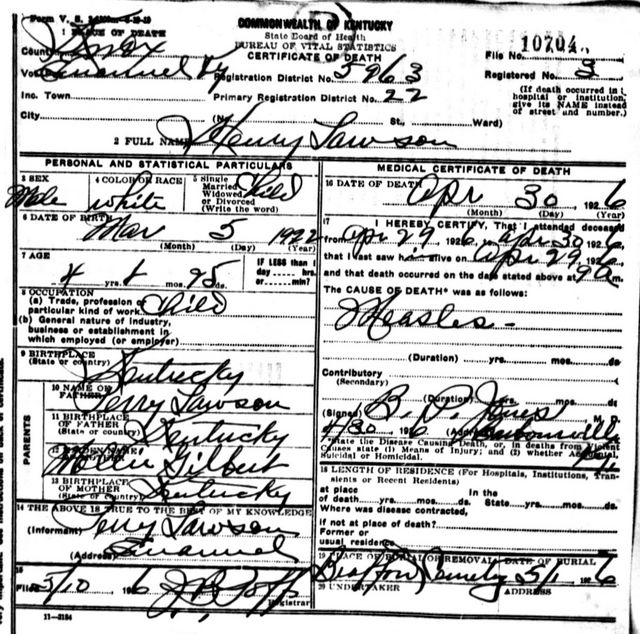 COMMONWEALTH OF KENTUCKY
State Board of Health
BUREAU OF VITAL STATISTICS
CERTIFICATE OF DEATH
1 PLACE OF DEATH
County Knox
File No. 10704
Registration District No. 5963
Registered No. 3
Inc. Town
Primary Registration District No. 22
(If death occurred in
hospital or institution,
give its NAME instead
of street and number.)
City (No. St., Ward)
2 FULL NAME Henry Lawson
PERSONAL AND STATISTICAL PARTICULARS
3 SEX
Male
4 COLOR OR RACE
white
5 Single
Married
Widowed
or Divorced
(Write the word)
Child
6 DATE OF BIRTH
Mar 5 1922
(Month) (Day) (Year)
7 AGE
4 yrs. 1 mos. 25 ds.
IF LESS than 1
day hrs.
or min?
8 OCCUPATION
(a) Trade, profession or
particular kind of work Child
(b) General nature of industry,
business or establishment in
which employed (or employer)
9 BIRTHPLACE
(State or country)
Kentucky
PARENTS
10 NAME OF
FATHER
Perry Lawson
11 BIRTHPLACE
OF FATHER
(State or country)
Kentucky
12 MAIDEN NAME
OF MOTHER
Gilbert
13 BIRTHPLACE
OF MOTHER
(State or country)
Kentucky
14 THE ABOVE IS TRUE TO THE BEST OF MY KNOWLEDGE
(Informant) Perry Lawson
(Address)
15
Filed 5/10 1926
Registrar
11-3184
MEDICAL CERTIFICATE OF DEATH
16 DATE OF DEATH
Apr 30 1926
(Month) (Day) (Year)
17 I HEREBY CERTIFY, That I attended deceased
from Apr 29 1926, Apr 30 1926,
that I last saw h alive on Apr 29 1926
and that death occurred on the date stated above at 9 a m.
The CAUSE OF DEATH* was as follows:
Measles
(Duration) yrs. mos. ds
Contributory
(Secondary)
(Duration) yrs. mos. ds
(Signed) B. P. Jones M. D.
4/30 1926 (Address) Barbourville
*State the Disease Causing Death, or, in deaths from Violent
Causes state (1) Means of Injury; and (2) whether Accidental,
Suicidal or Homicidal.
18 LENGTH OF RESIDENCE (For Hospitals, Institutions, Transients
or Recent Residents)
at place
of death yrs. mos. ds.
In the
State yrs. mos. ds.
Where was disease contracted,
if not at place of death?
Former or
usual residence
19 PLACE OF BURIAL OR REMOVAL
DATE OF BURIAL
5/1 1926
20 UNDERTAKER
ADDRESS